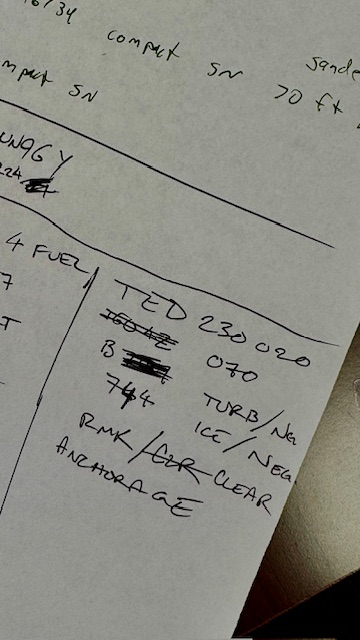 compact SN sande
mpact SN 70 ft
UN96Y
224
4 FUEL
7
T
TED 230 020
B 070
744 TURB/NEG
ICE/NEG
RMK/CLR CLEAR
ANCHORAGE